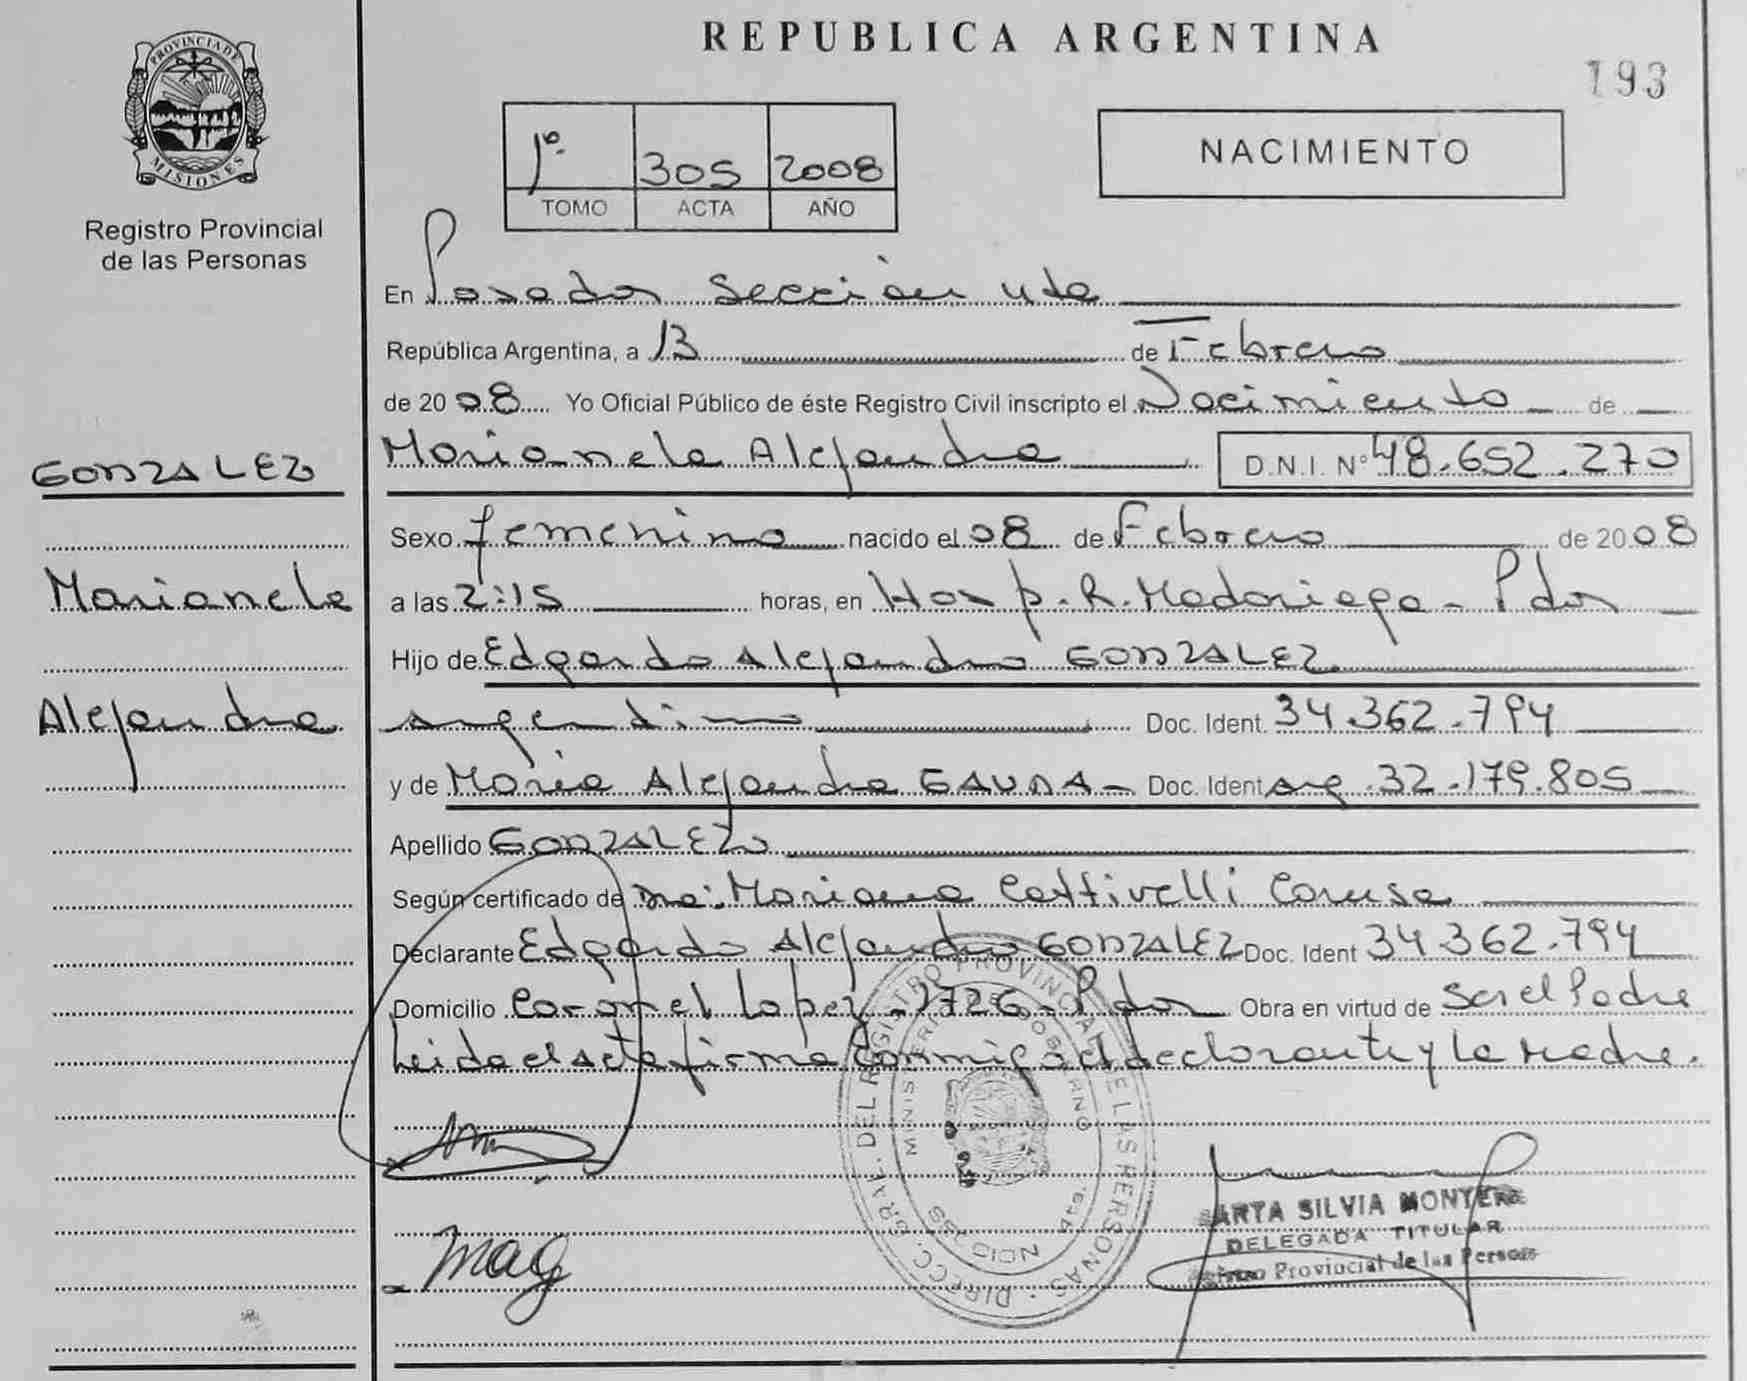 REPUBLICA ARGENTINA
193
PROVINCIA DE
MISIONES
Registro Provincial
de las Personas
1º 305 2008
TOMO ACTA AÑO
NACIMIENTO
En Posadas Sección 4ta
República Argentina, a 13 de Febrero
de 2008 Yo Oficial Público de éste Registro Civil inscripto el Nacimiento de
GONZALEZ
Marianela Alejandra D.N.I. Nº 48.652.270
Sexo femenino nacido el 08 de Febrero de 2008
Marianela
a las 2:15 horas, en Hosp. R. Madariaga - Pdas
Hijo de Edgardo Alejandro GONZALEZ
Alejandra
argentino Doc. Ident. 34.362.794
y de María Alejandra GAUNA - Doc. Ident arg. 32.179.805
Apellido GONZALEZ
Según certificado de Mariana Cattivelli
Declarante Edgardo Alejandro GONZALEZ Doc. Ident 34.362.794
Domicilio Coronel Lopez - 1726 - Pdas Obra en virtud de Ser el Padre
Leida el acta firma conmigo el declarante y la Madre.
DIRECC. GRAL. DEL REGISTRO PROVINCIAL DE LAS PERSONAS
mag
ARTA SILVIA MONTERO
DELEGADA TITULAR
Provincial de las Persons